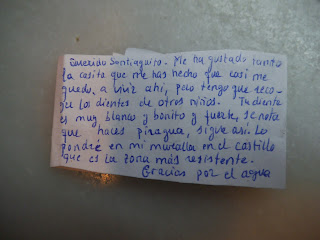 Querido Santiaguito. Me ha gustado tanto
la casita que me has hecho que casi me
quedo a vivir ahí, pero tengo que reco-
ger los dientes de otros niños. Tu diente
es muy blanco y bonito y fuerte, se nota
que haces piragua, sigue así. Lo
pondré en mi muralla en el castillo
que es la zona más resistente.
Gracias por el agua